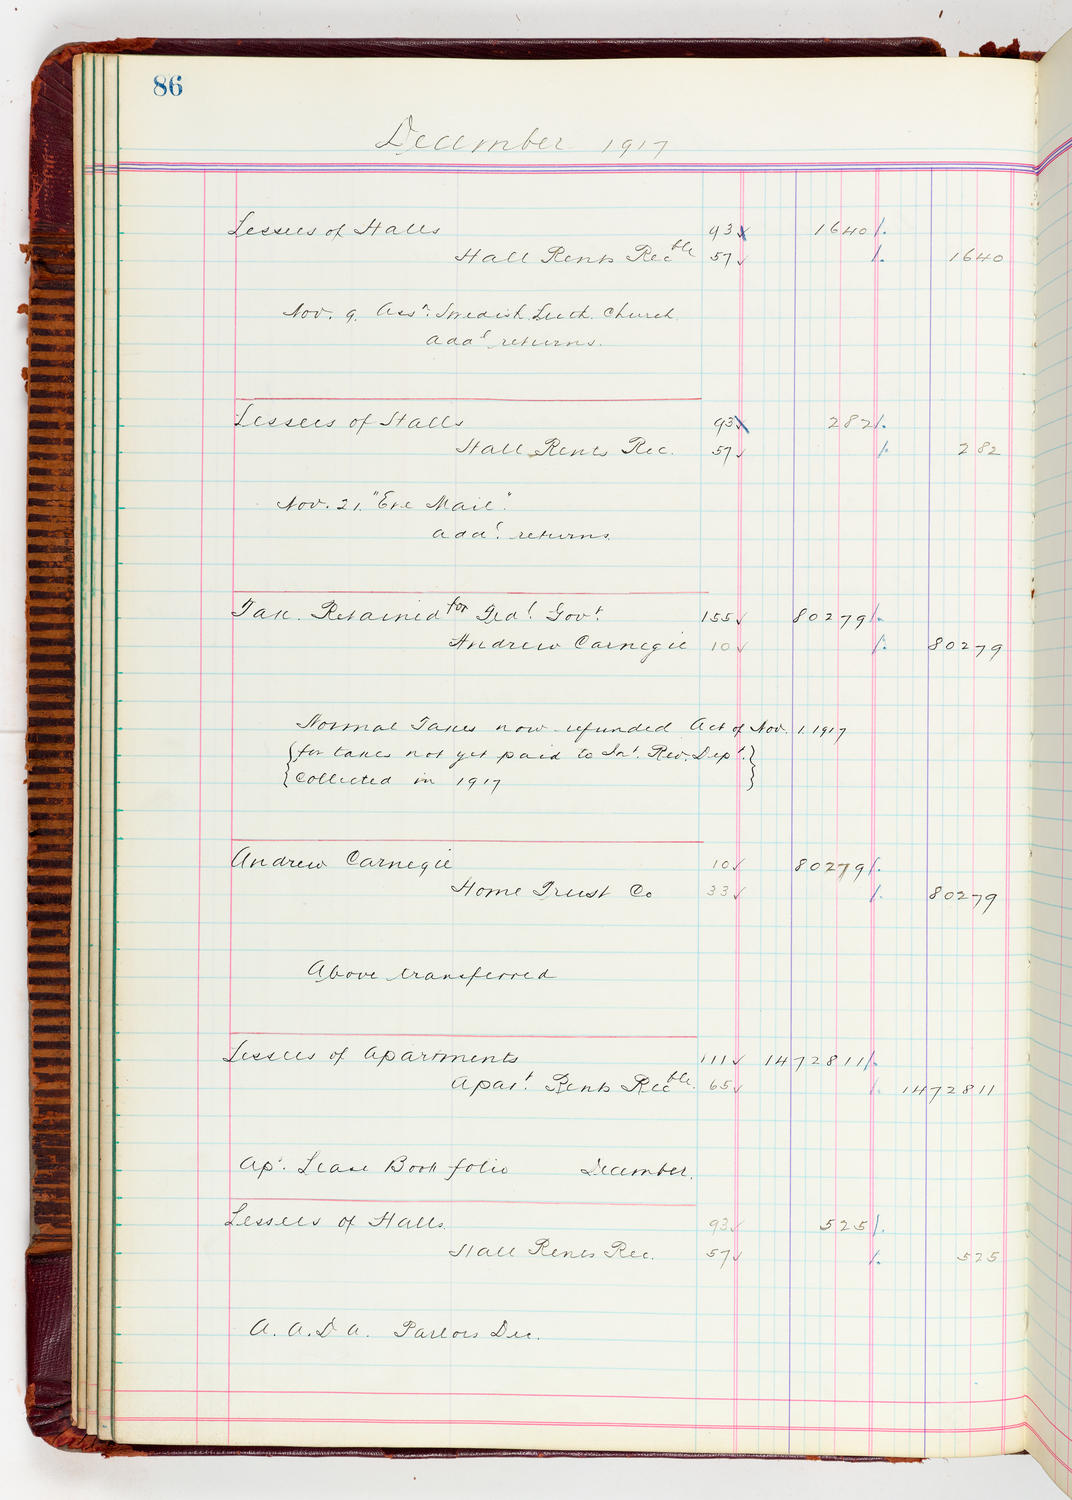 86
December 1917
Lessees of Halls 93 1640
Hall Rents Rec^ble 57 1640
Nov. 9. Ass^n. Swedish Luth. Church
add^l returns.
Lessees of Halls 93 282
Hall Rents Rec. 57 282
Nov. 21. "Eve Mail".
add^l. returns.
Tax. Retained for Fed^l. Gov^t. 155 80279
Andrew Carnegie 10 80279
Normal Taxes now refunded Act of Nov. 1. 1917
{for taxes not yet paid to In^t. Rev. Dep^t.}
{Collected in 1917}
Andrew Carnegie 10 80279
Home Trust Co 33 80279
Above transferred
Lessees of Apartments 111 1472811
Apar^t. Rents Rec^ble. 65 1472811
Ap^t. Lease Book folio December.
Lessees of Halls 93 525
Hall Rents Rec. 57 525
A. A. D A. Parlors Dec.